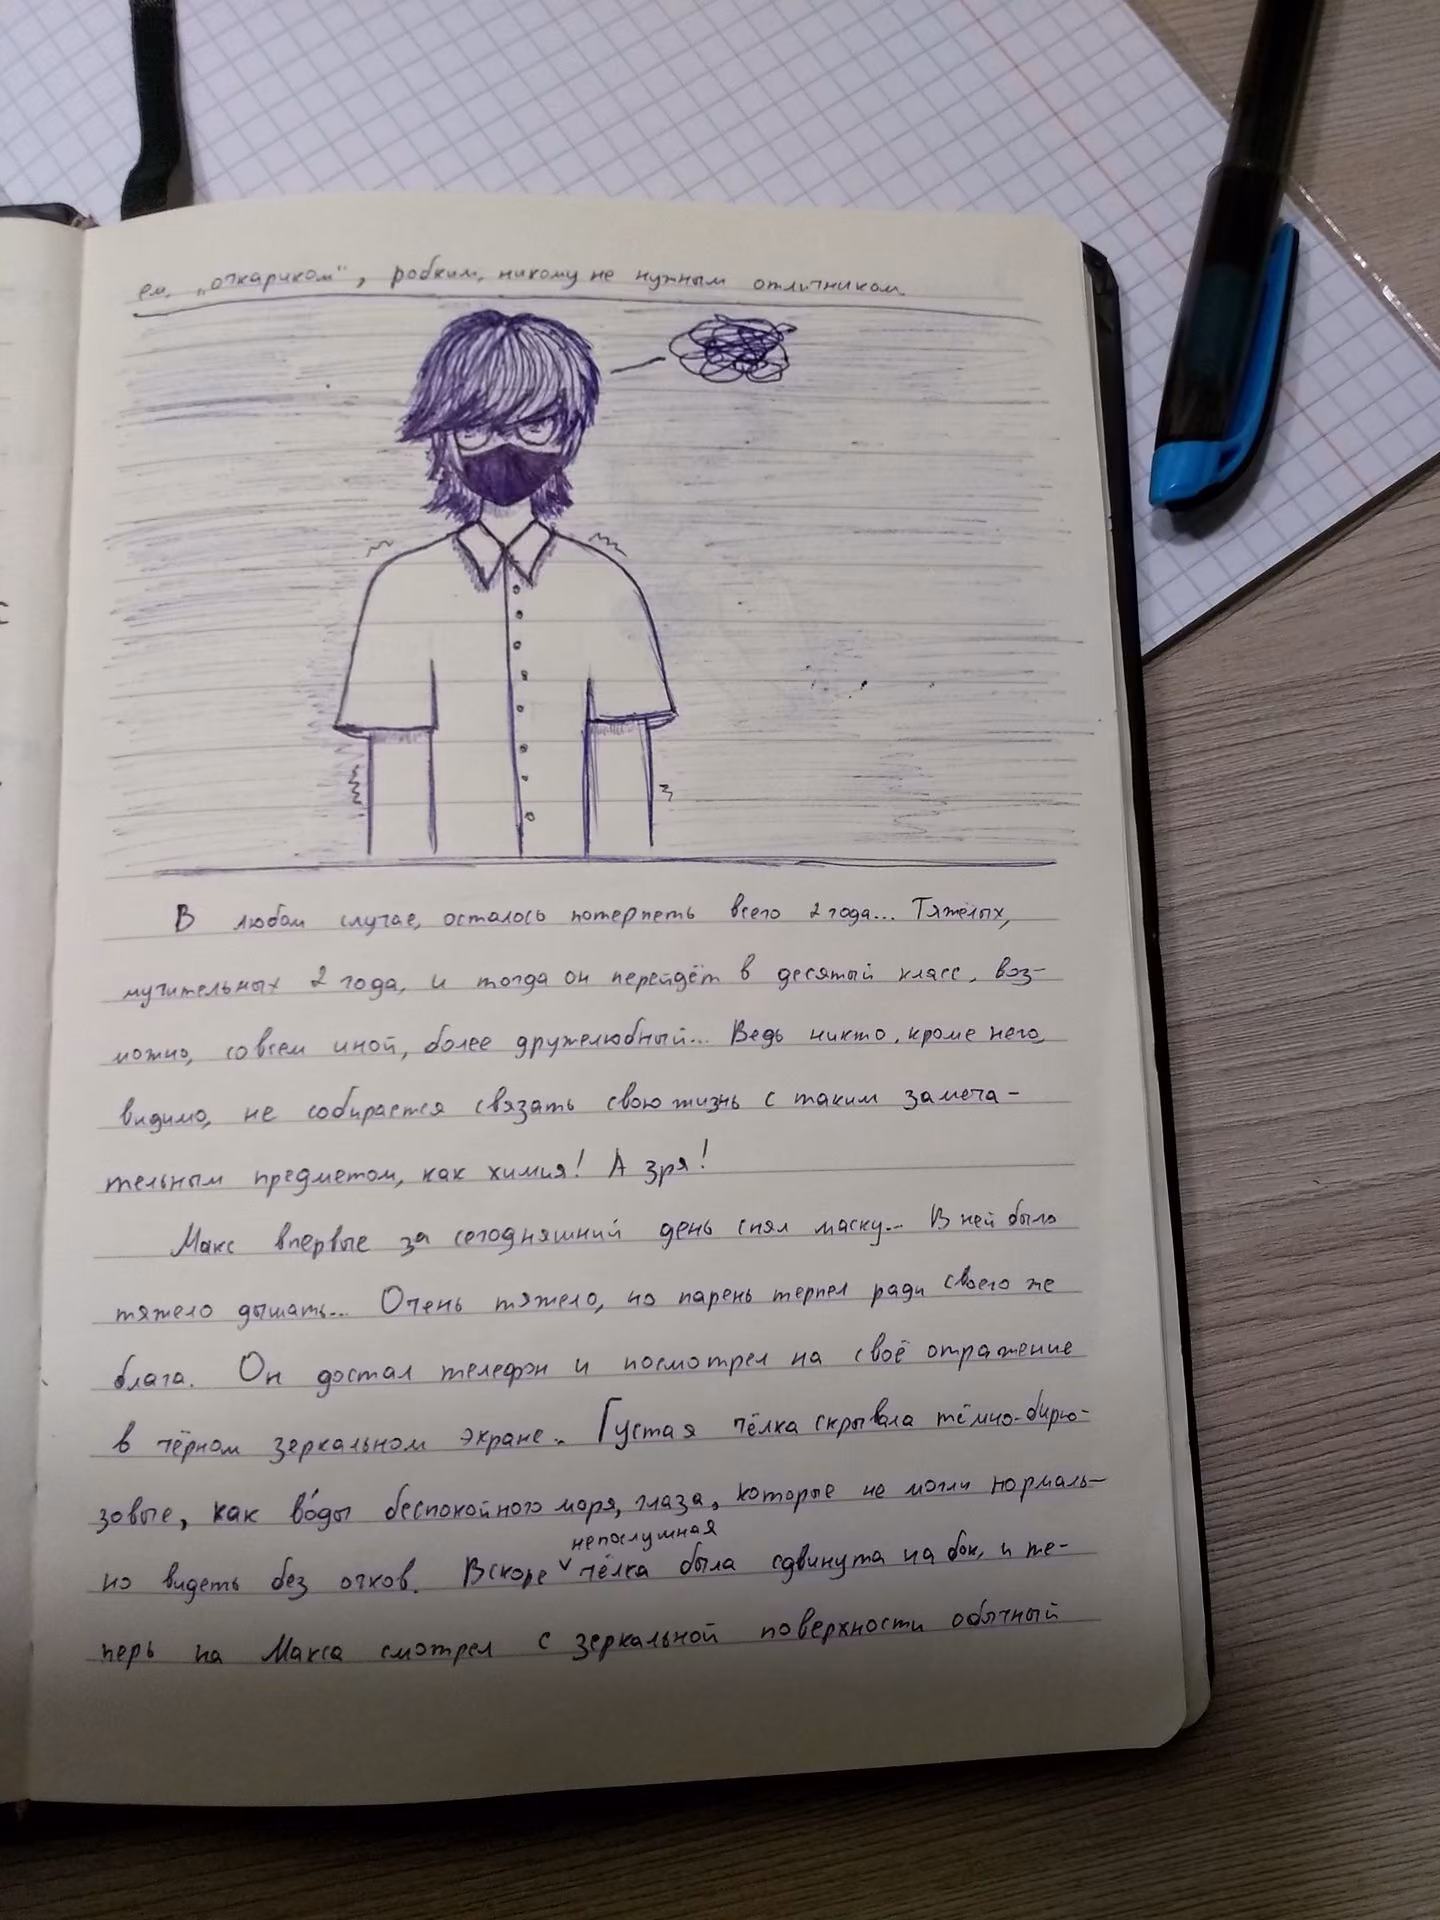 ем, „очкариком“, робким, никому не нужным отличником.
В любом случае, осталось потерпеть всего 2 года... Тяжёлых,
мучительных 2 года, и тогда он перейдёт в десятый класс, воз-
можно, совсем иной, более дружелюбный... Ведь никто, кроме него,
видимо, не собирается связать свою жизнь с таким замеча-
тельным предметом, как химия! А зря!
Макс впервые за сегодняшний день снял маску... В ней было
тяжело дышать... Очень тяжело, но парень терпел ради своего же
блага. Он достал телефон и посмотрел на своё отражение
в чёрном зеркальном экране. Густая чёлка скрывала тёмно-бирю-
зовые, как во́ды беспокойного моря, глаза, которые не могли нормаль-
непослушная
но видеть без очков. Вскоре ˅ чёлка была сдвинута на бок, и те-
перь на Макса смотрел с зеркальной поверхности обычный